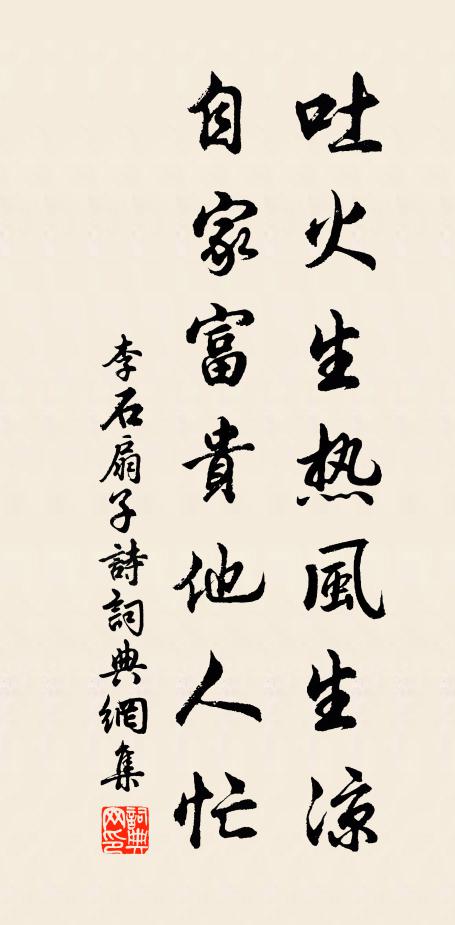 吐火生热風生凉
自家富貴他人忙
李石扇子詩詞典網集
詞典网印